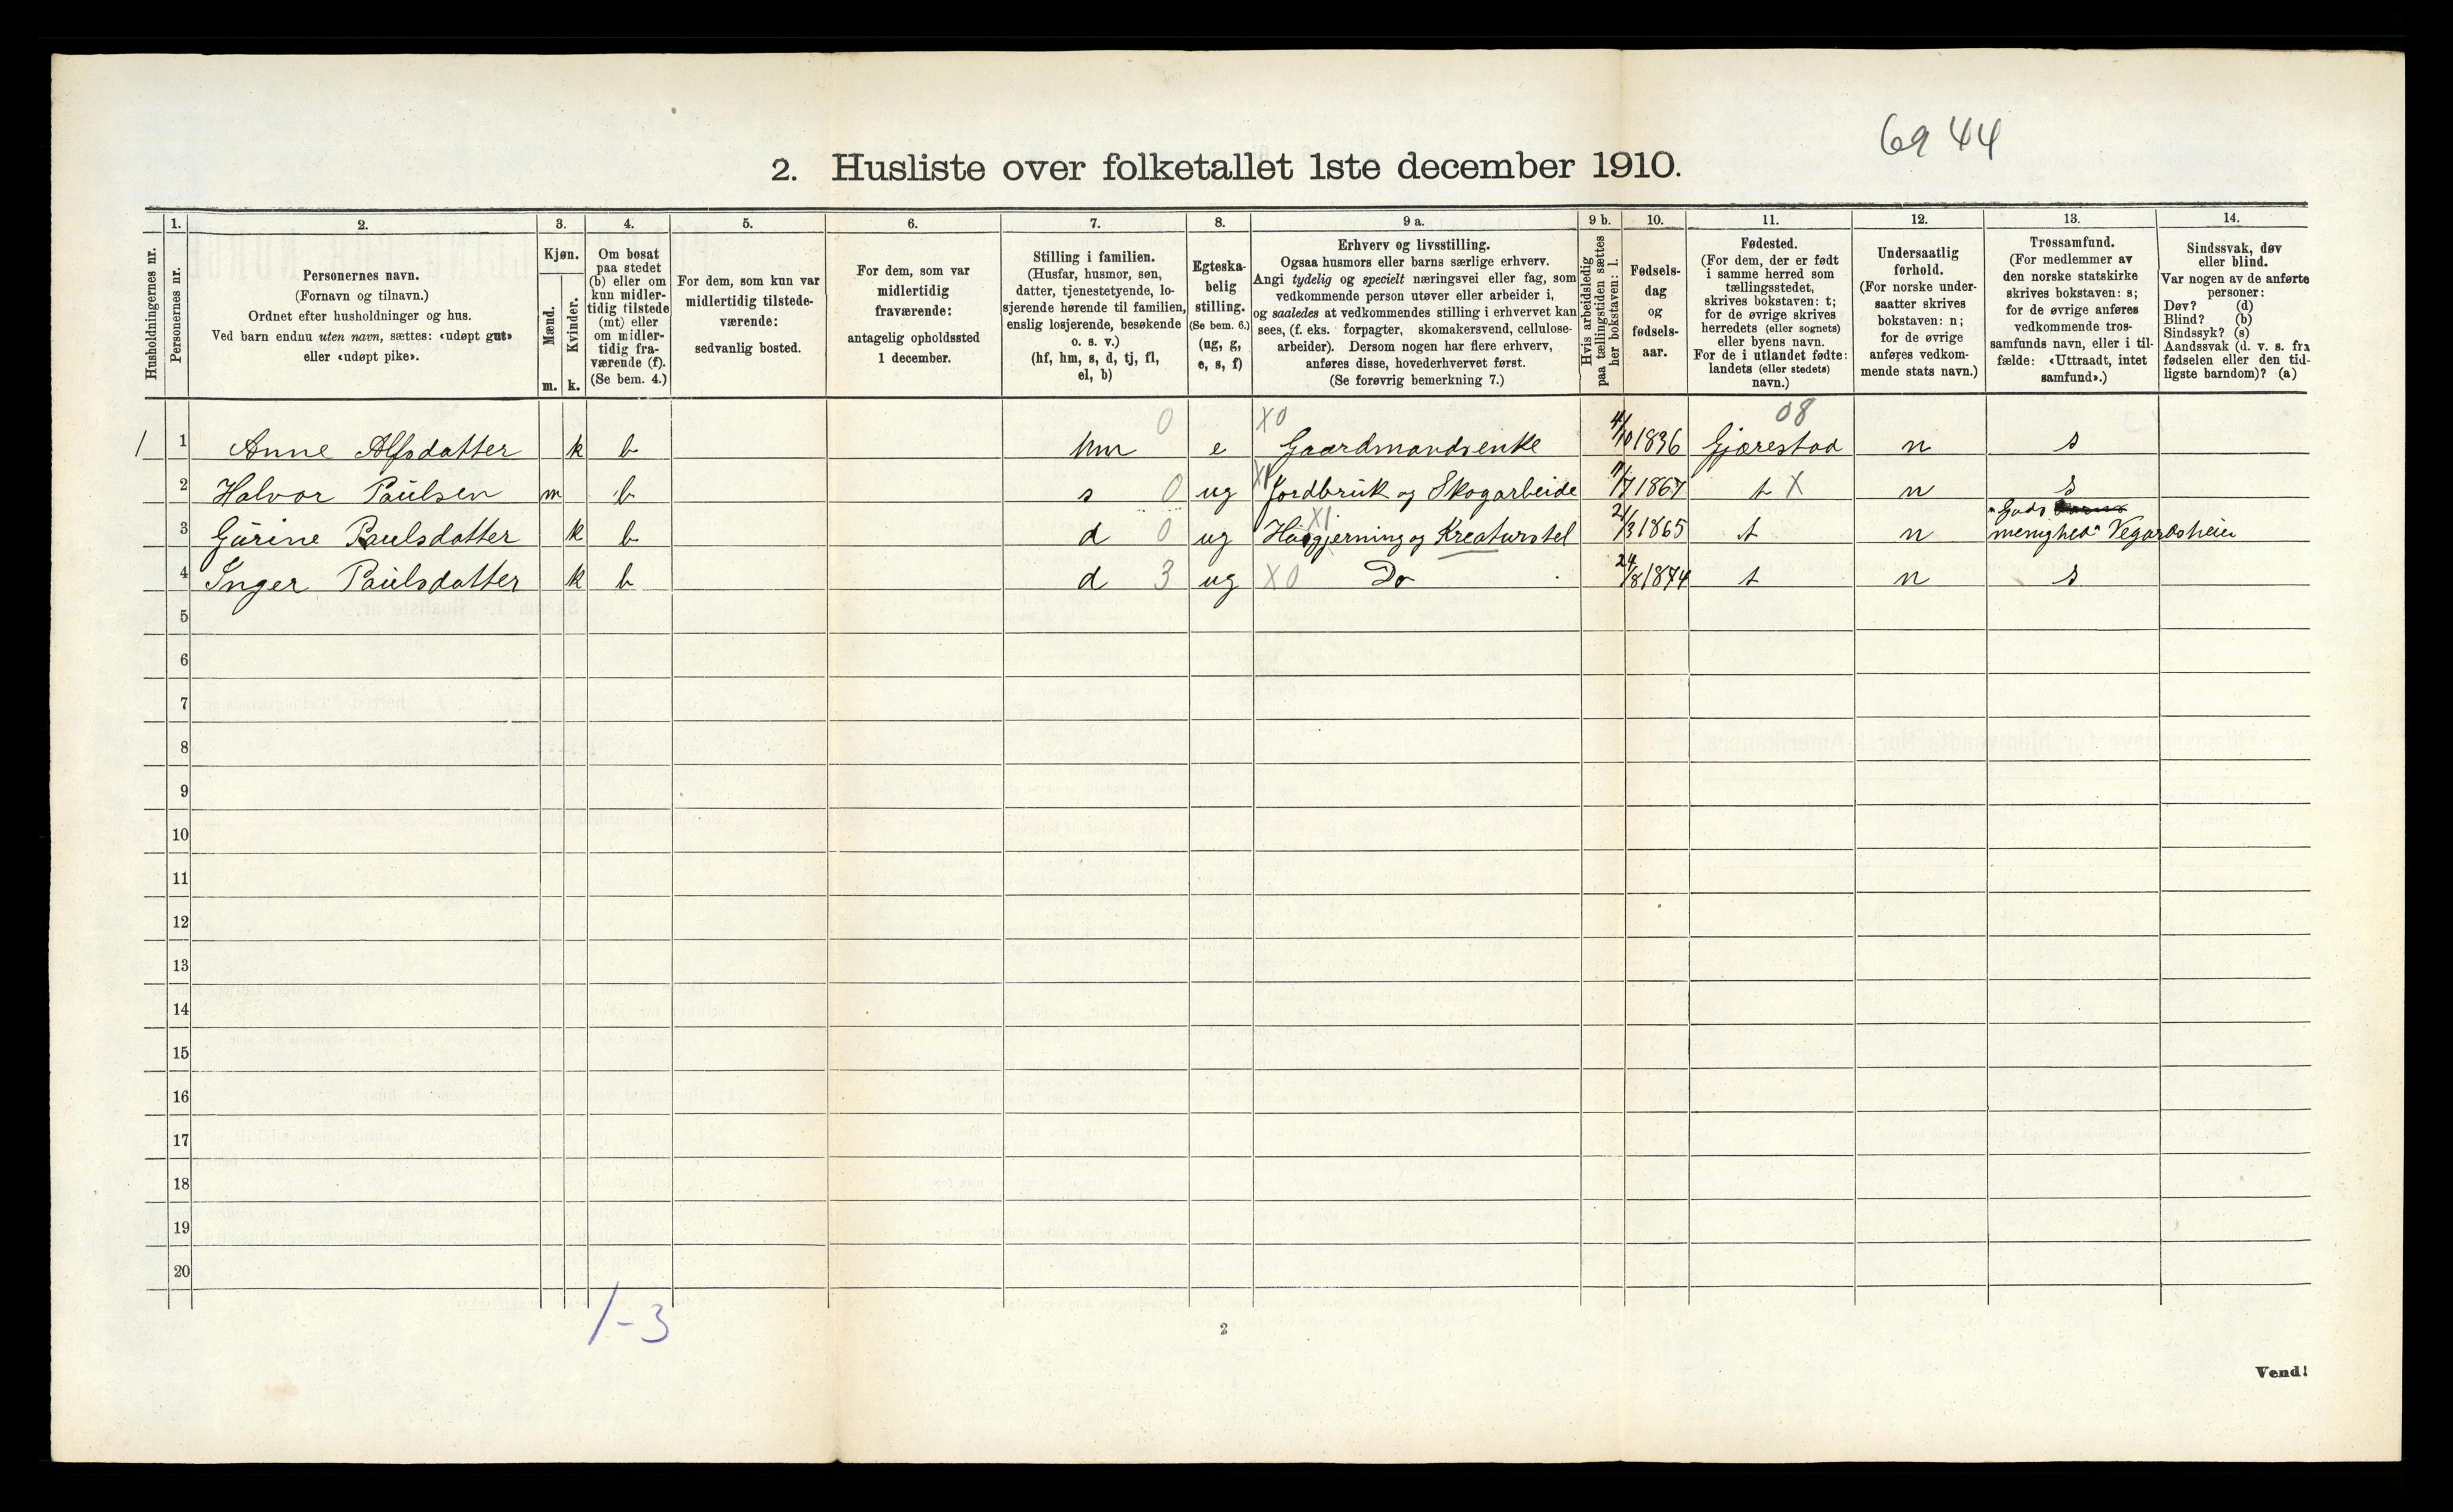 69 44
2. Husliste over folketallet 1ste december 1910.
Husholdningernes nr.
1.
Personernes nr.
2.
Personernes navn.
(Fornavn og tilnavn.)
Ordnet efter husholdninger og hus.
Ved barn endnu uten navn, sættes: «udøpt gut»
eller «udøpt pike».
3.
Kjøn.
Mænd.
Kvinder.
m. k.
4.
Om bosat
paa stedet
(b) eller om
kun midler-
tidig tilstede
(mt) eller
om midler-
tidig fra-
værende (f).
(Se bem. 4.)
5.
For dem, som kun var
midlertidig tilstede-
værende:
sedvanlig bosted.
6.
For dem, som var
midlertidig
fraværende:
antagelig opholdssted
1 december.
7.
Stilling i familien.
(Husfar, husmor, søn,
datter, tjenestetyende, lo-
sjerende hørende til familien,
enslig losjerende, besøkende
o. s. v.)
(hf, hm, s, d, tj, fl,
el, b)
8.
Egteska-
belig
stilling.
(Se bem. 6.)
(ug, g,
e, s, f)
9 a.
Erhverv og livsstilling.
Ogsaa husmors eller barns særlige erhverv.
Angi tydelig og specielt næringsvei eller fag, som
vedkommende person utøver eller arbeider i,
og saaledes at vedkommendes stilling i erhvervet kan
sees, (f. eks. forpagter, skomakersvend, cellulose-
arbeider). Dersom nogen har flere erhverv,
anføres disse, hovederhvervet først.
(Se forøvrig bemerkning 7.)
9 b.
Hvis arbeidsledig
paa tællingstiden sættes
her bokstaven: l.
10.
Fødsels-
dag
og
fødsels-
aar.
11.
Fødested.
(For dem, der er født
i samme herred som
tællingsstedet,
skrives bokstaven: t;
for de øvrige skrives
herredets (eller sognets)
eller byens navn.
For de i utlandet fødte:
landets (eller stedets)
navn.)
12.
Undersaatlig
forhold.
(For norske under-
saatter skrives
bokstaven: n;
for de øvrige
anføres vedkom-
mende stats navn.)
13.
Trossamfund.
(For medlemmer av
den norske statskirke
skrives bokstaven: s;
for de øvrige anføres
vedkommende tros-
samfunds navn, eller i til-
fælde: «Uttraadt, intet
samfund».)
14.
Sindssvak, døv
eller blind.
Var nogen av de anførte
personer:
Døv? (d)
Blind? (b)
Sindssyk? (s)
Aandssvak (d. v. s. fra
fødselen eller den tid-
ligste barndom)? (a)
0 X0 08
1 1 Anne Alfsdatter k b hm e Gaardmandsenke 4/10 1836 Gjærestad n s
2 Halvor Paulsen m b s 0 ug X1 Jordbruk og Skogarbeide 7/7 1867 t X n s
3 Gurine Paulsdatter k b d 0 ug X1 Husgjerning og Kreaturstel 21/3 1865 t n "Guds
menighed" Vegardsheien
4 Inger Paulsdatter k b d 3 ug X0 Do 24/8 1874 t n s
5
6
7
8
9
10
11
12
13
14
15
16
17
18
19
20
1-3
2
Vend!